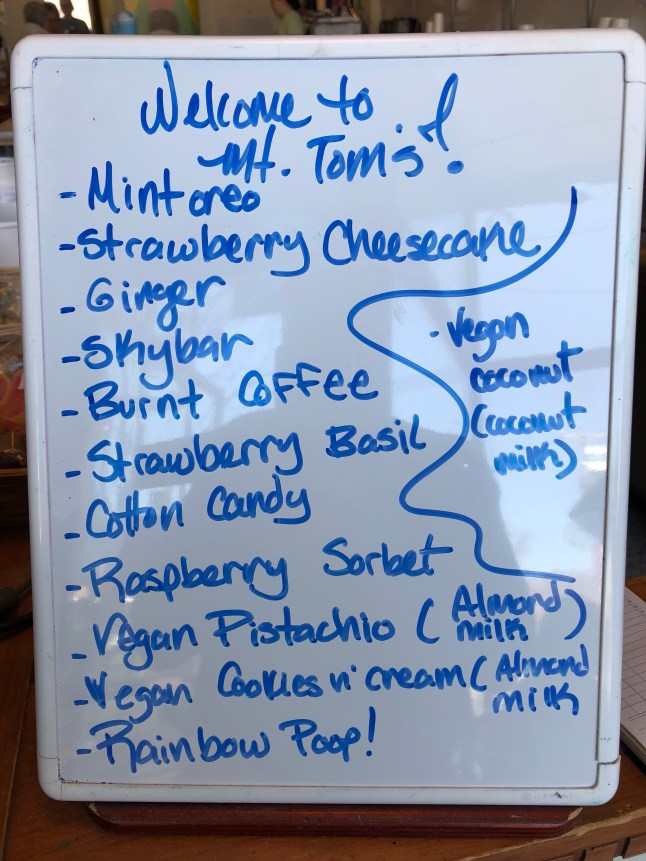 Welcome to
Mt. Tom's!
- Mint oreo
- Strawberry Cheesecake
- Ginger
- Skybar
- Burnt Coffee
- Strawberry Basil
- Cotton Candy
- Raspberry Sorbet
- Vegan Pistachio (Almond milk)
- Vegan Cookies n' cream (Almond milk
- Rainbow Poop!
- Vegan
coconut
(coconut
milk)